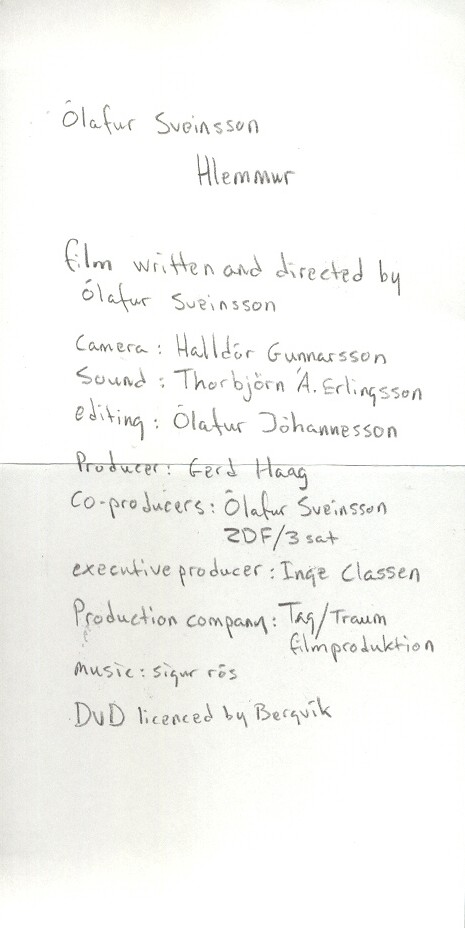 Ólafur Sveinsson
Hlemmur
film written and directed by
Ólafur Sveinsson
Camera : Halldór Gunnarsson
Sound : Thorbjörn Á. Erlingsson
editing : Ólafur Jóhannesson
Producer : Gerd Haag
Co-producers : Ólafur Sveinsson
ZDF/3sat
executive producer : Inge Classen
Production company : Tag/Traum
filmproduktion
music : sigur rós
DVD licenced by Bergvík